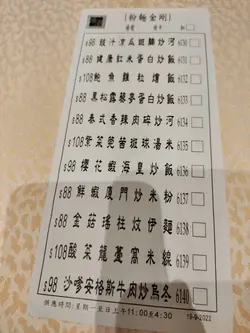 [粉麵金剛]
$98 豉汁涼瓜斑腩炒河 6130
$88 健康紅米蛋白炒飯 6131
$108 鮑魚雞粒燴飯 6132
$88 黑松露藜麥蛋白炒飯 6133
$88 泰式香辣肉碎炒河 6134
$108 紫菜莞茜斑球湯米 6135
$98 櫻花蝦海皇炒飯 6136
$88 鮮蝦廈門炒米粉 6137
$88 金菇瑤柱炆伊麵 6138
$108 酸菜龍躉窩米線 6139
$98 沙嗲安格斯牛肉炒烏冬 6140
供應時間:星期一至日上午11:00至4:30
19-9-2022